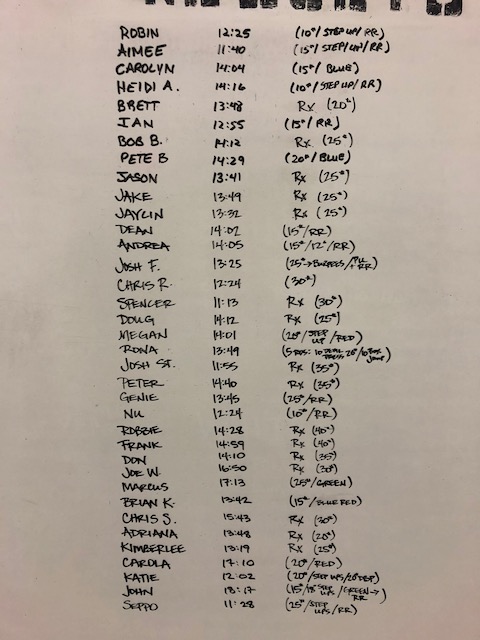 ROBIN 12:25 (10#/STEP UP/RR)
AIMEE 11:40 (15#/STEP/UP/RR)
CAROLYN 14:04 (15#/BLUE)
HEIDI A. 14:16 (10#/STEP UP/RR)
BRETT 13:48 Rx (20#)
IAN 12:55 (15#/RR)
BOB B. 14:12 Rx (25#)
PETE B 14:29 (20#/BLUE)
JASON 13:41 Rx (25#)
JAKE 13:49 Rx (25#)
JAYLIN 13:32 Rx (25#)
DEAN 14:02 (15#/RR)
ANDREA 14:05 (15#/12"/RR)
JOSH F. 13:25 (25#→BURPEES/PU + RR)
CHRIS R. 12:24 (30#)
SPENCER 11:13 Rx (30#)
DOUG 14:12 Rx (25#)
MEGAN 14:01 (20#/STEP UP/RED)
RONA 13:49 (5 RDS: 10 PRESS 20#/10 BOX JUMP)
JOSH ST. 11:55 Rx (35#)
PETER 14:40 Rx (35#)
GENIE 13:45 (25#/RR)
NU 12:24 (10#/RR)
ROBBIE 14:28 Rx (40#)
FRANK 14:59 Rx (40#)
DON 14:10 Rx (35#)
JOE W. 16:50 Rx (30#)
MARCUS 17:13 (25#/GREEN)
BRIAN K. 13:42 (15#/BLUE RED)
CHRIS S. 15:43 Rx (30#)
ADRIANA 13:48 Rx (20#)
KIMBERLEE 13:19 Rx (25#)
CAROLA 17:10 (20#/RED)
KATIE 12:02 (20#/STEP UPS/20#DBP)
JOHN 18:17 (15#/18" STEP UPS/GREEN→RR
SEPPO 11:28 (25#/STEP UPS/RR)